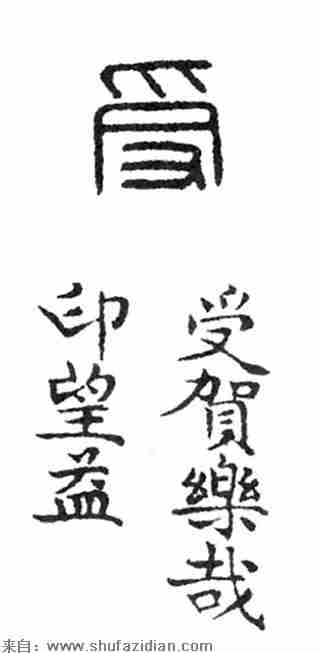 受
受賀樂哉
印望益
来自：www.shufazidian.com